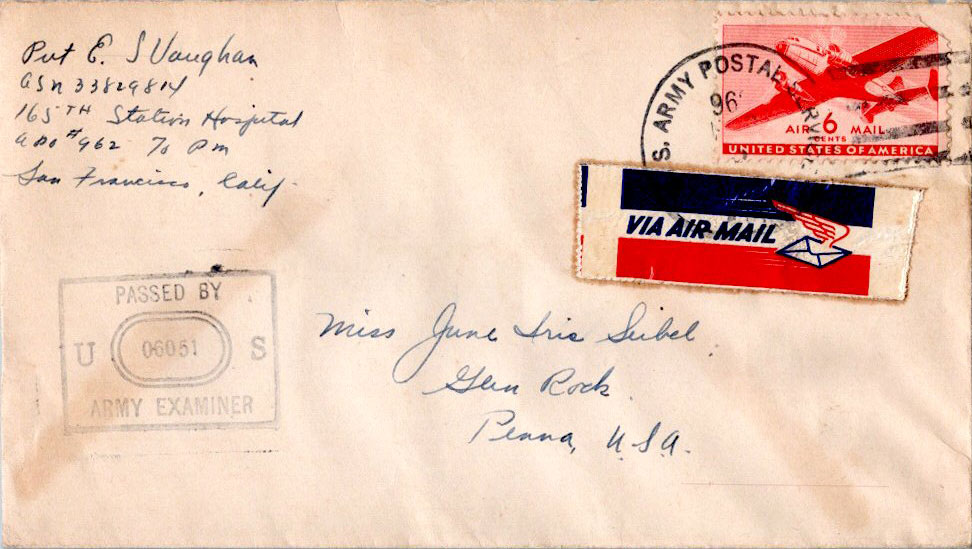 Pvt E. S Vaughan
ASN 33829814
165TH Station Hospital
APO #962 % PM
San Francisco, Calif.
S. ARMY POSTAL SERVICE
96
AIR 6 MAIL
CENTS
UNITED STATES OF AMERICA
VIA AIR MAIL
PASSED BY
U 06051 S
ARMY EXAMINER
Miss June Iris Seibel
Glen Rock
Penna, U.S.A.